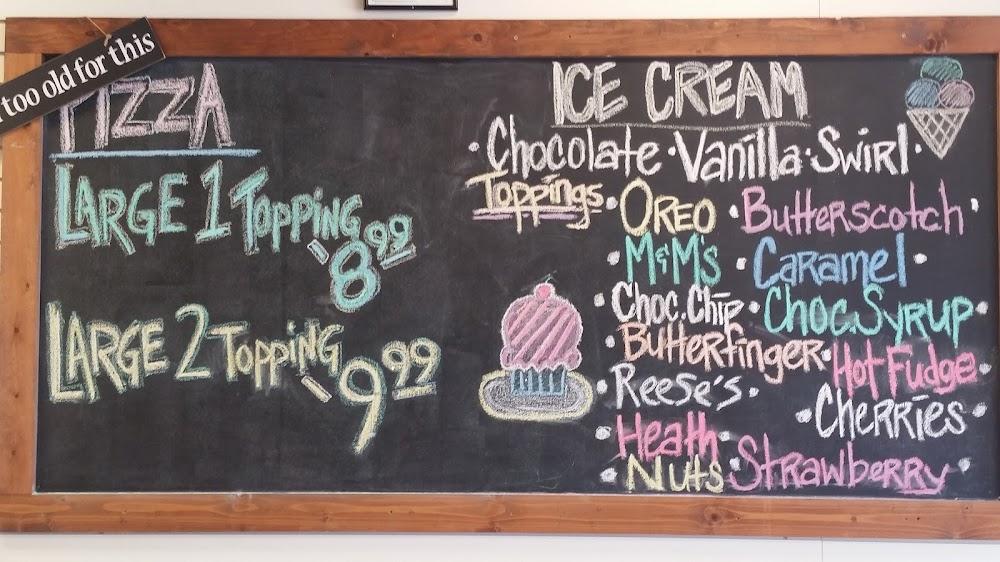 too old for this
PIZZA
LARGE 1 TOPPING - 8.99
LARGE 2 TOPPING - 9.99
ICE CREAM
• Chocolate • Vanilla • Swirl •
Toppings • OREO • Butterscotch •
• M&M's • Caramel •
• Choc. Chip • Choc. Syrup •
• Butterfinger • Hot Fudge •
• Reese's • • Cherries •
• Heath •
• Nuts • Strawberry •